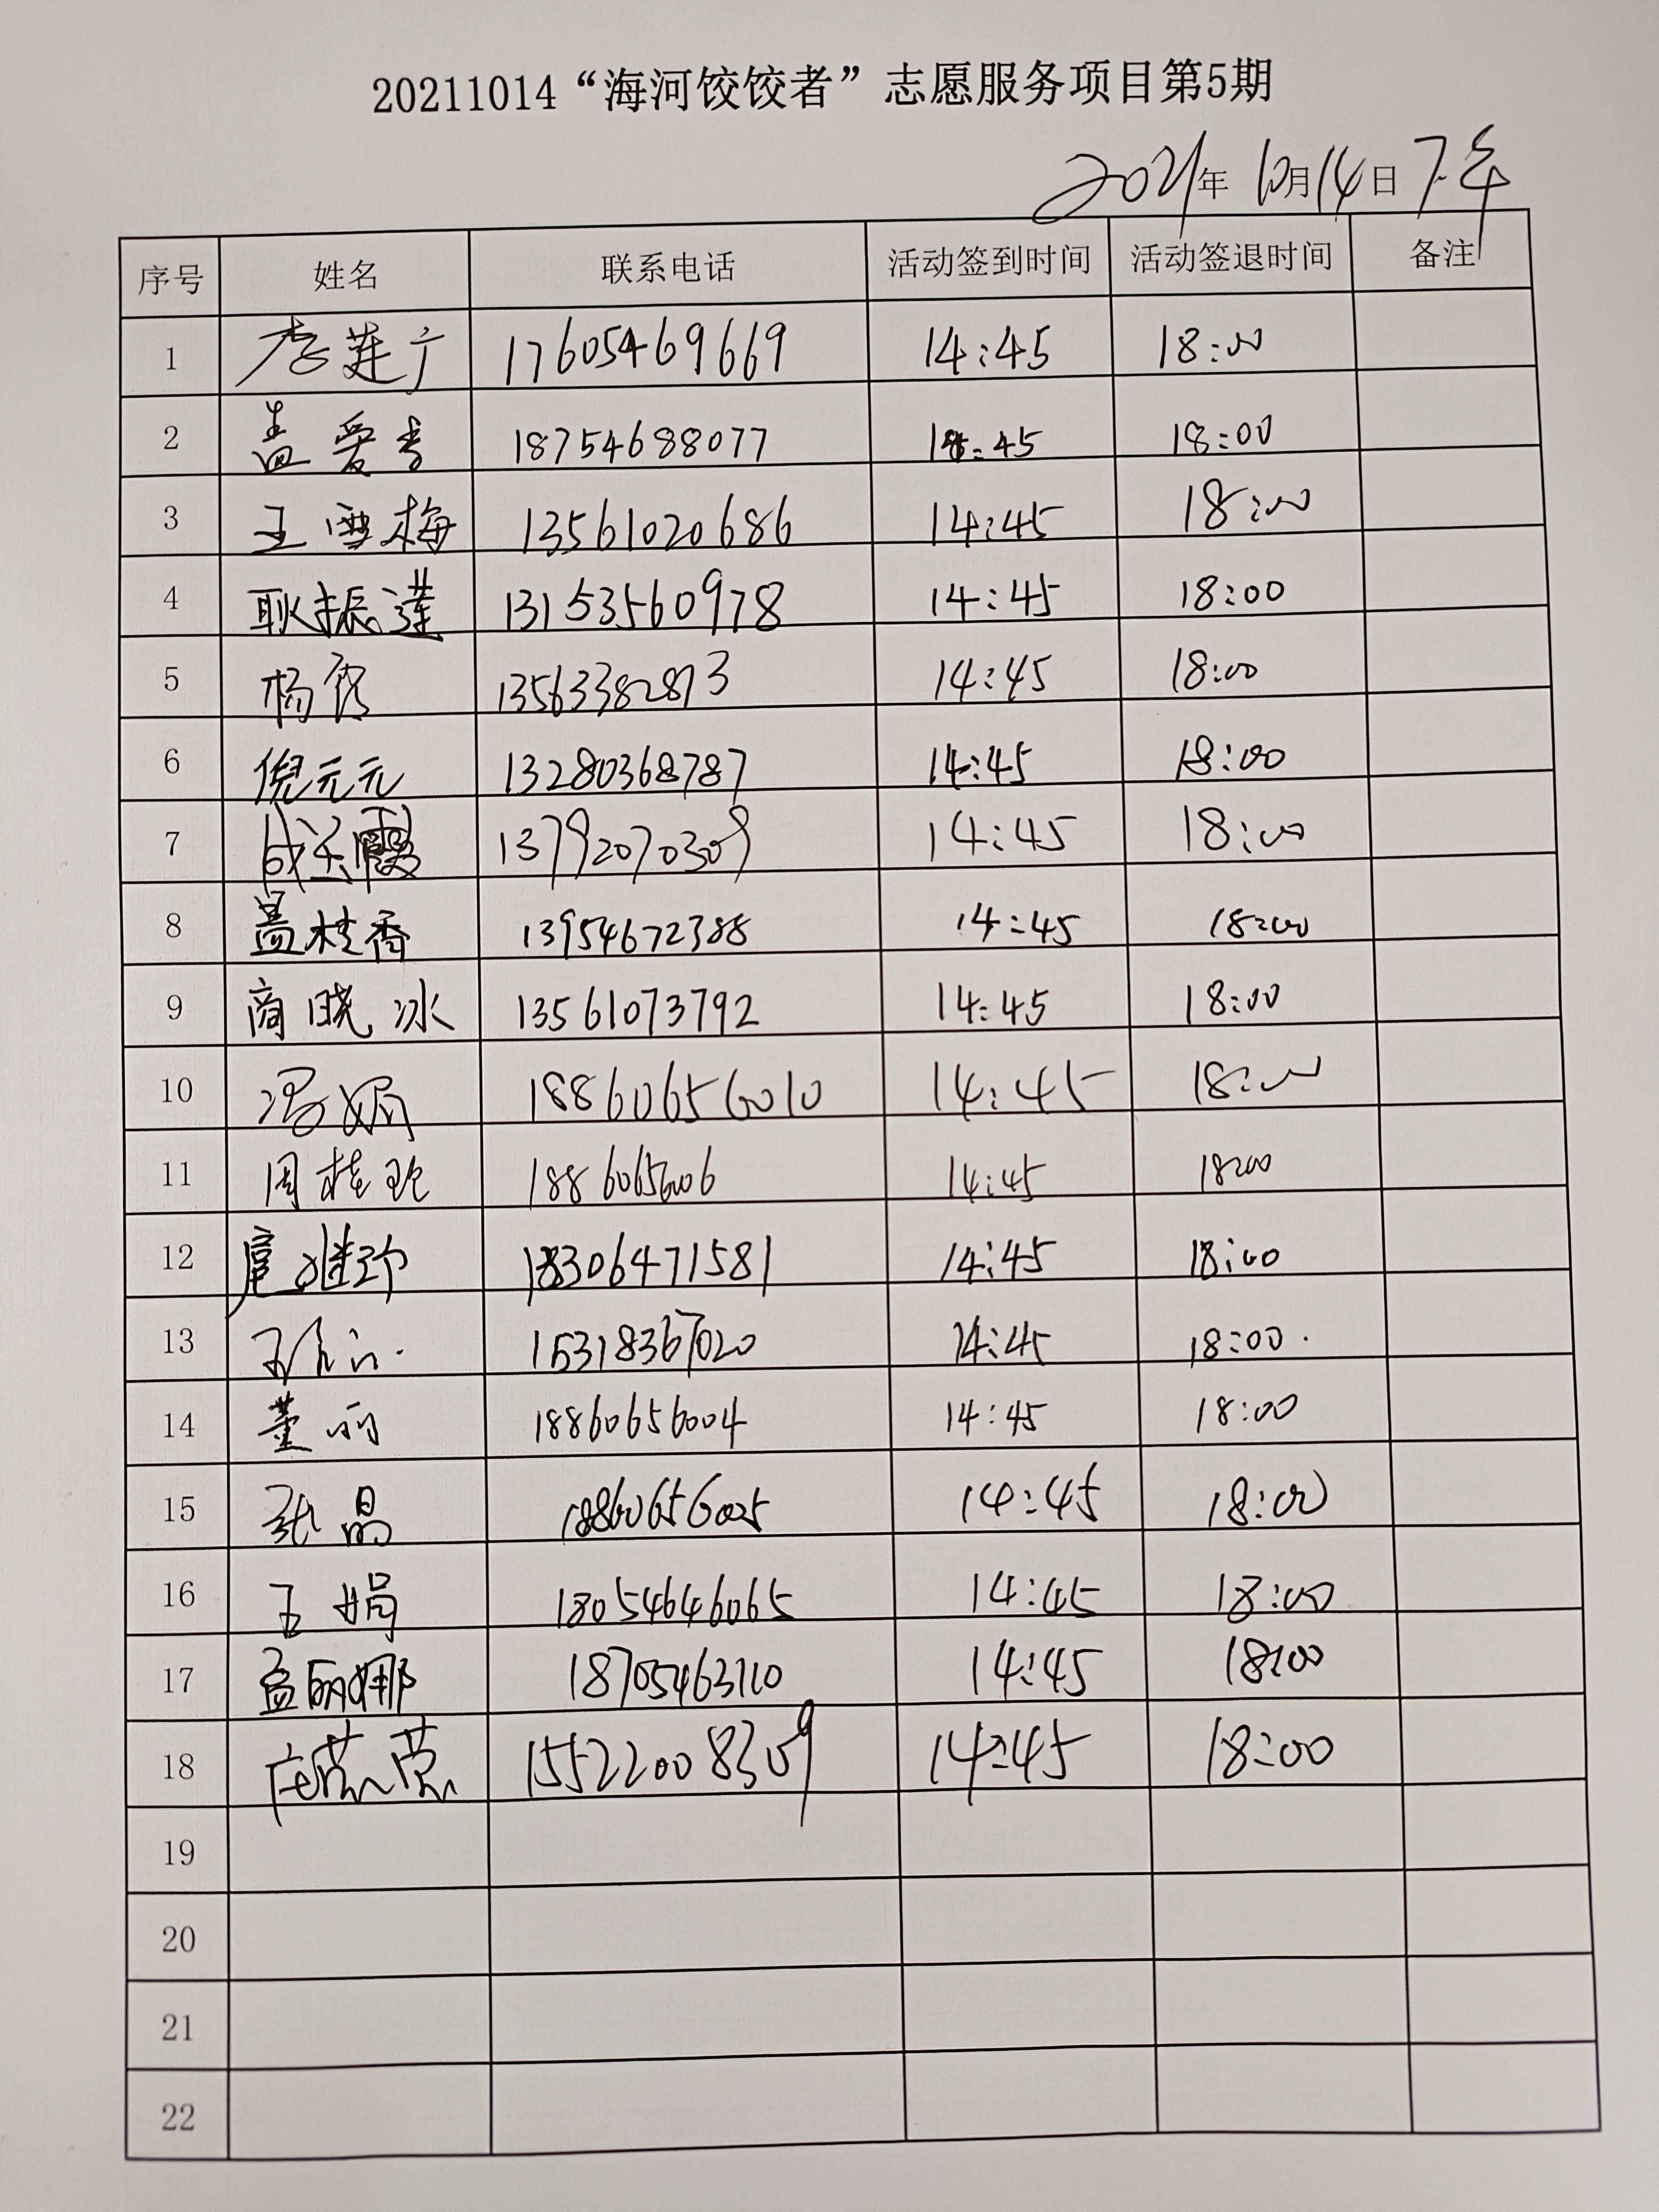 20211014“海河饺饺者”志愿服务项目第5期
2021年 10月14日 下午
序号 姓名 联系电话 活动签到时间 活动签退时间 备注
1 李莲广 17605469669 14:45 18:00
2 盖爱香 18754688077 14:45 18:00
3 王雪梅 13561020686 14:45 18:00
4 耿振莲 13153560978 14:45 18:00
5 杨 13563382813 14:45 18:00
6 倪元元 13280368787 14:45 18:00
7 成玉霞 13792070309 14:45 18:00
8 盖桂香 13954672388 14:45 18:00
9 商晓冰 13561073792 14:45 18:00
10 冯娟 18860656010 14:45 18:00
11 周桂 14:45 18:00
12 扈雅 18306471581 14:45 18:00
13 15318367020 14:45 18:00.
14 董丽 18860656004 14:45 18:00
15 张晶 18860656025 14:45 18:00
16 王娟 18054646065 14:45 18:00
17 孟丽娜 18705463110 14:45 18:00
18 15522008309 14:45 18:00
19
20
21
22